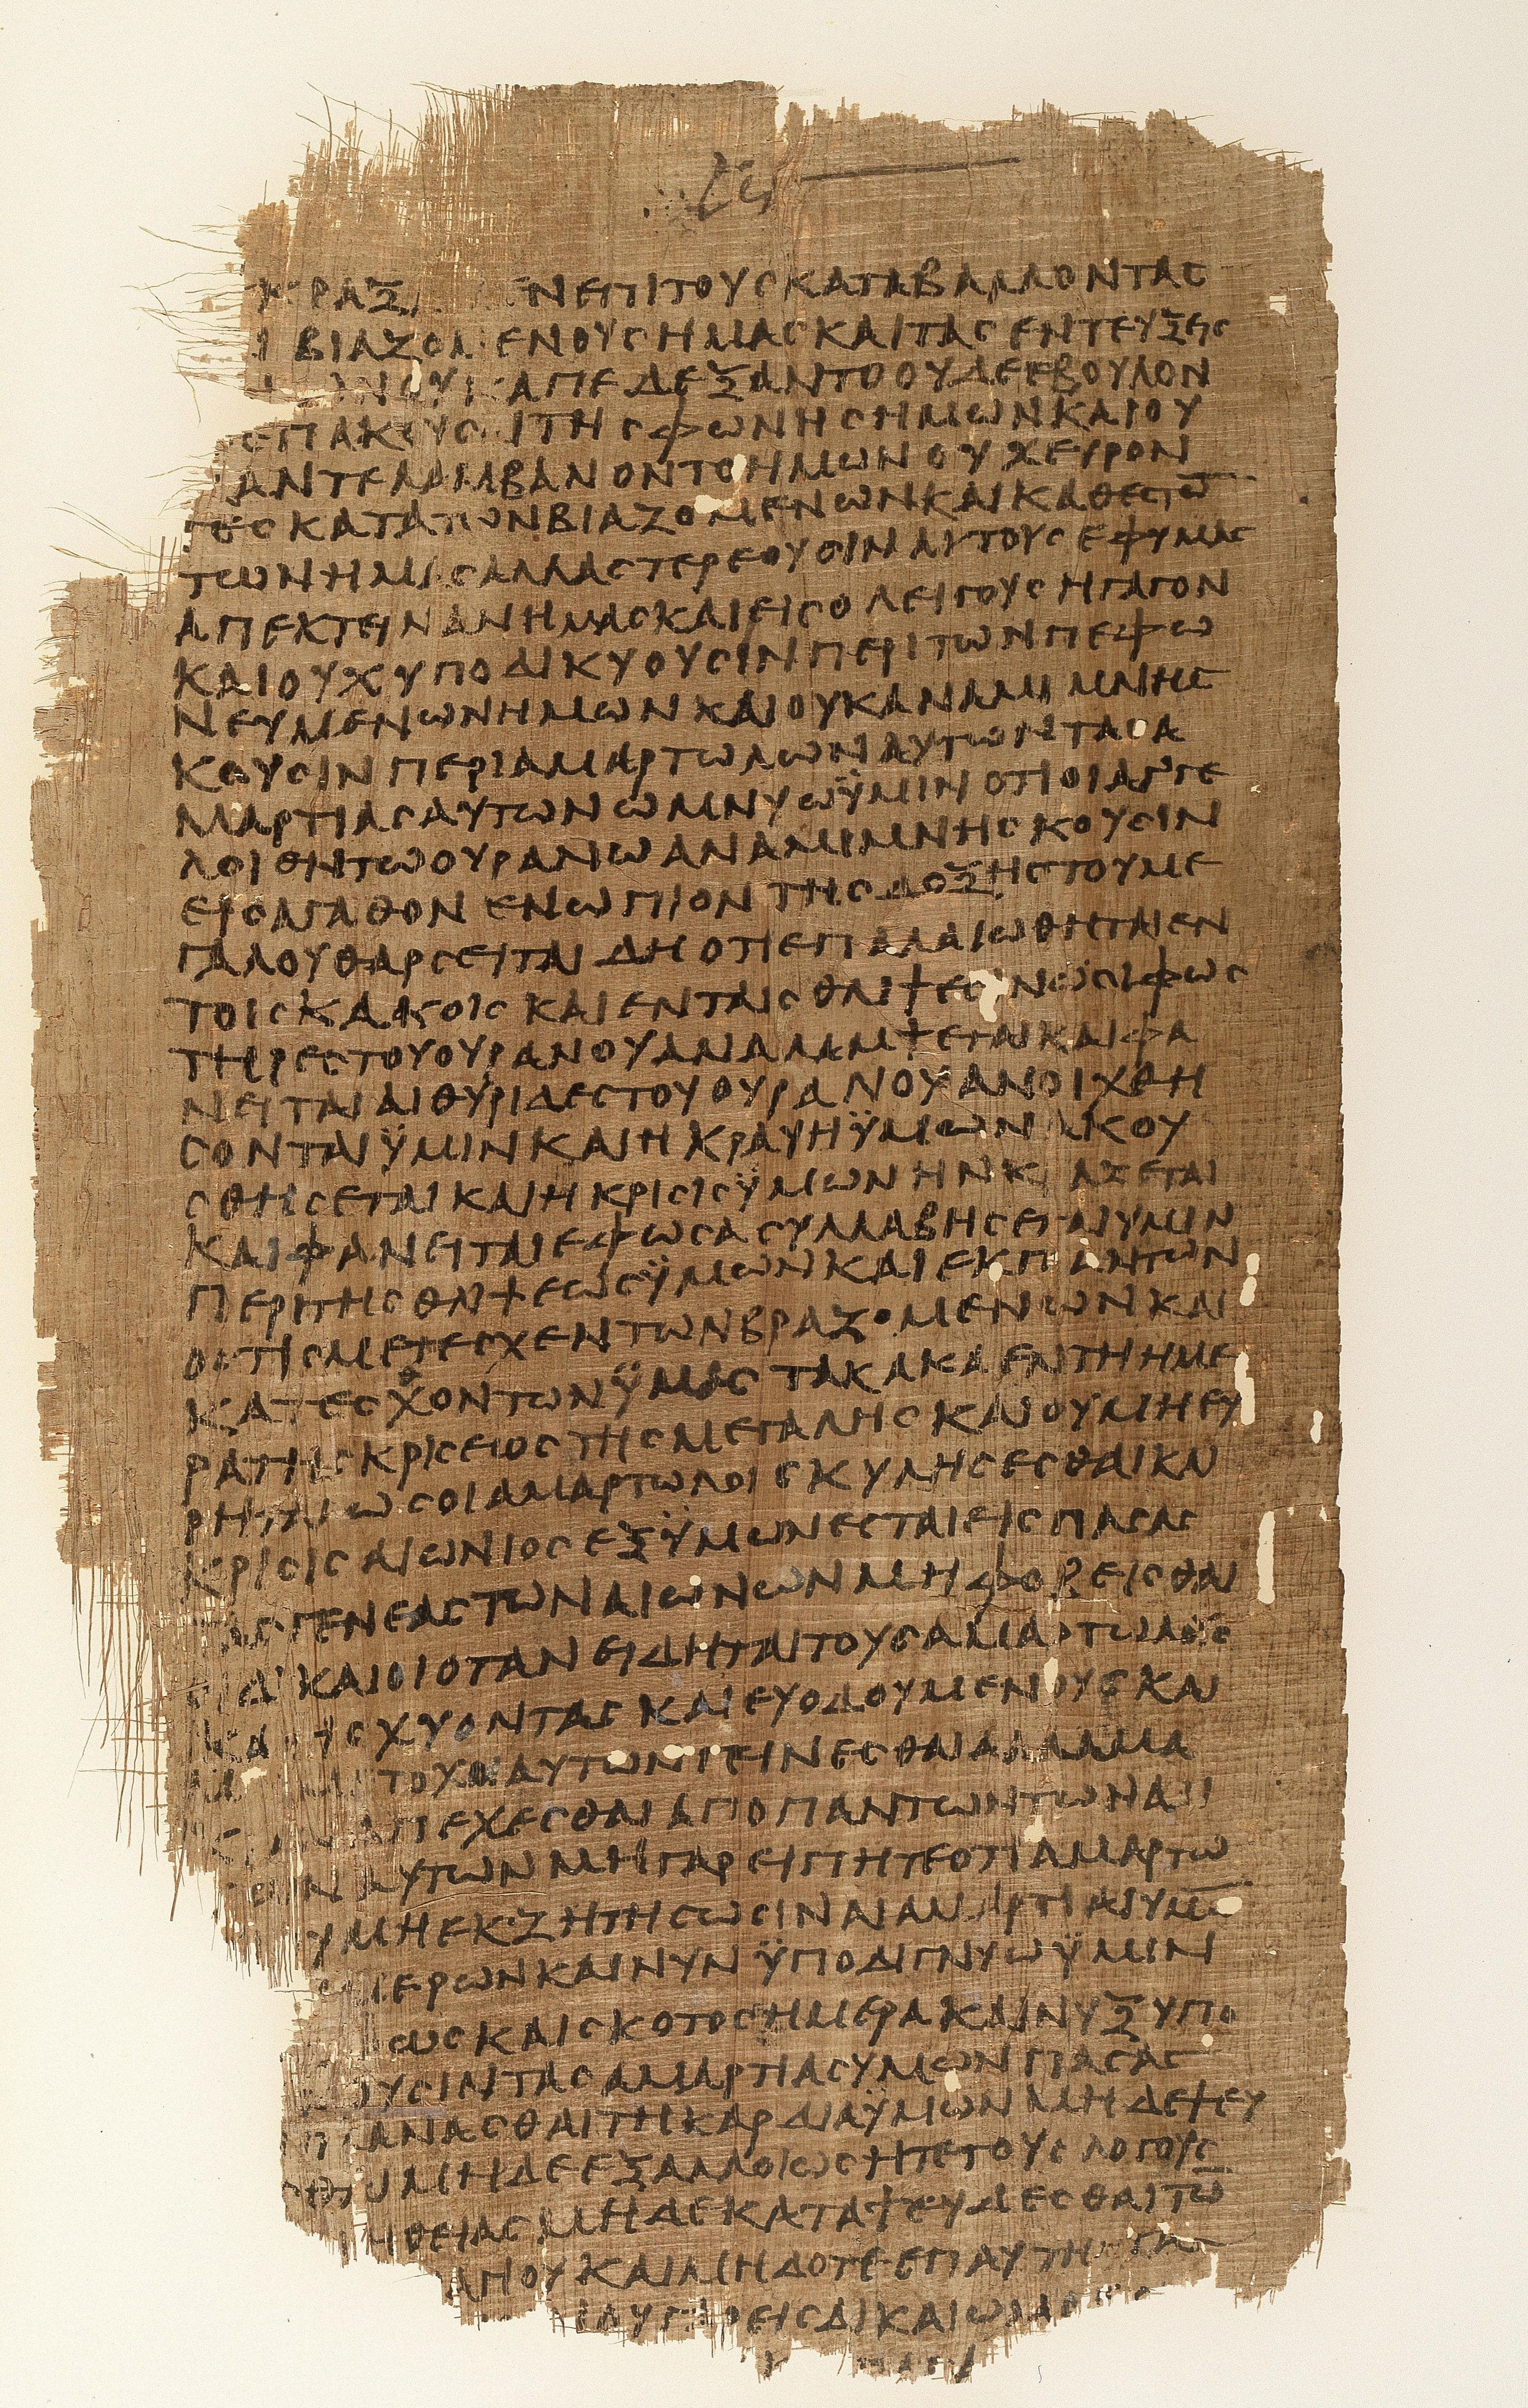 ΚΡΑΞ ΕΝΕΠΙΤΟΥϹΚΑΤΑΒΑΛΛΟΝΤΑϹ
ΒΙΑΖΟΜΕΝΟΥϹΗΜΑϹΚΑΙΤΑϹΕΝΤΕΥΞΕΙϹ
ΝΟΥΚΑΠΕΔΕΞΑΝΤΟΟΥΔΕΕΒΟΥΛΟΝ
ΕΠΑΚΟΥϹΑΙΤΗϹΦΩΝΗϹΗΜΩΝΚΑΙΟΥ
ΑΝΤΕΛΑΜΒΑΝΟΝΤΟΗΜΩΝΟΥΧΕΥΡΟΝ
ΤΕϹΚΑΤΑΤΩΝΒΙΑΖΟΜΕΝΩΝΚΑΙΚΑΘΕϹΤΩ̅
ΤΩΝΗΜΑϹΑΛΛΑϹΤΕΡΕΟΥϹΙΝΑΥΤΟΥϹΕΦΥΜΑϹ
ΑΠΕΚΤΕΙΝΑΝΗΜΑϹΚΑΙΕΙϹΟΛΕΙΓΟΥϹΗΓΑΓΟΝ
ΚΑΙΟΥΧΥΠΟΔΙΚΥΟΥϹΙΝΠΕΡΙΤΩΝΠΕΦΩ
ΝΕΥΜΕΝΩΝΗΜΩΝΚΑΙΟΥΚΑΝΑΜΙΜΝΗϹ
ΚΟΥϹΙΝΠΕΡΙΑΜΑΡΤΩΛΩΝΑΥΤΩΝΤΑϹΑ
ΜΑΡΤΙΑϹΑΥΤΩΝΩΜΝΥΩΫΜΙΝΟΤΙΟΙΑΓΓΕ
ΛΟΙΕΝΤΩΟΥΡΑΝΩΑΝΑΜΙΜΝΗϹΚΟΥϹΙΝ
ΕΙϹΑΓΑΘΟΝΕΝΩΠΙΟΝΤΗϹΔΟΞΗϹΤΟΥΜΕ
ΓΑΛΟΥΘΑΡϹΕΙΤΑΙΔΗΟΤΙΕΠΑΛΑΙΩΘΗΤΑΙΕΝ
ΤΟΙϹΚΑΚΟΙϹΚΑΙΕΝΤΑΙϹΘΛΙΨΕϹΙΝΩϹΙΦΩϹ
ΤΗΡΕϹΤΟΥΟΥΡΑΝΟΥΑΝΑΛΑΜΨΕΤΑΙΚΑΙΦΑ
ΝΕΙΤΑΙΑΙΘΥΡΙΔΕϹΤΟΥΟΥΡΑΝΟΥΑΝΟΙΧΘΗ
ϹΟΝΤΑΙΫΜΙΝΚΑΙΗΚΡΑΥΗΫΜΩΝΑΚΟΥ
ϹΘΗϹΕΤΑΙΚΑΙΗΚΡΙϹΙϹΫΜΩΝΗΝΚΡΑΞΕΤΑΙ
ΚΑΙΦΑΝΕΙΤΑΙΕΦΩϹΑϹΥΛΛΑΒΗϹΕΤΑΙΥΜΙΝ
ΠΕΡΙΤΗϹΘΛΙΨΕΩϹΫΜΩΝΚΑΙΕΚΠΑΝΤΩΝ
ΟϹΤΙϹΜΕΤΕϹΧΕΝΤΩΝΒΡΑΖΟΜΕΝΩΝΚΑΙ
ΚΑΤΕϹΧΟΝΤΩΝΫΜΑϹΤΑΚΑΚΑΕΝΤΗΗΜΕ
ΡΑΤΗϹΚΡΙϹΕΙΟϹΤΗϹΜΕΓΑΛΗϹΚΑΙΟΥΜΗΕΥ
ΡΗΤΑΙΩϹΟΙΑΜΑΡΤΩΛΟΙϹΚΥΛΗϹΕϹΘΑΙΚΑΙ
ΚΡΙϹΙϹΑΙΩΝΙΟϹΕΞΫΜΩΝΕϹΤΑΙΕΙϹΠΑϹΑϹ
ΤΑϹΓΕΝΕΑϹΤΩΝΑΙΩΝΩΝΜΗΦΟΒΕΙϹΘΑΙ
ΔΙΚΑΙΟΙΟΤΑΝΕΙΔΗΤΑΙΤΟΥϹΑΜΑΡΤΩΛΟΥϹ
ΚΑΤΙϹΧΥΟΝΤΑϹΚΑΙΕΥΟΔΟΥΜΕΝΟΥϹΚΑΙ
ΤΟΧΟΙΑΥΤΩΝΓΕΙΝΕϹΘΑΙΑΛΛΑΜΑ
ΑΠΕΧΕϹΘΑΙΑΠΟΠΑΝΤΩΝΤΩΝΑΔΙ
ΑΥΤΩΝΜΗΓΑΡΕΙΠΗΤΕΟΤΙΑΜΑΡΤΩ
ΥΜΗΕΚΖΗΤΗϹΩϹΙΝΑΙΑΜΑΡΤΙΑΙΥΜΩ̅
ΜΕΡΩΝΚΑΙΝΥΝΫΠΟΔΙΓΝΥΩΫΜΙΝ
ΩϹΚΑΙϹΚΟΤΟϹΗΜΕΡΑΚΑΙΝΥΞΥΠΟ
ΟΥϹΙΝΤΑϹΑΜΑΡΤΙΑϹΥΜΩΝΠΑϹΑϹ
ΠΛΑΝΑϹΘΑΙΤΗΚΑΡΔΙΑΫΜΩΝΜΗΔΕΨΕΥ
ΜΗΔΕΕΞΑΛΛΟΙΩϹΗΤΕΤΟΥϹΛΟΓΟΥϹ
ΗΘΕΙΑϹΜΗΔΕΚΑΤΑΨΕΥΔΕϹΘΑΙΤΩ̅
ΚΑΙΜΗΔΟΤΕΕΠΑΥΤΗ
ΕΙϹΔΙΚΑΙΩΜΑ